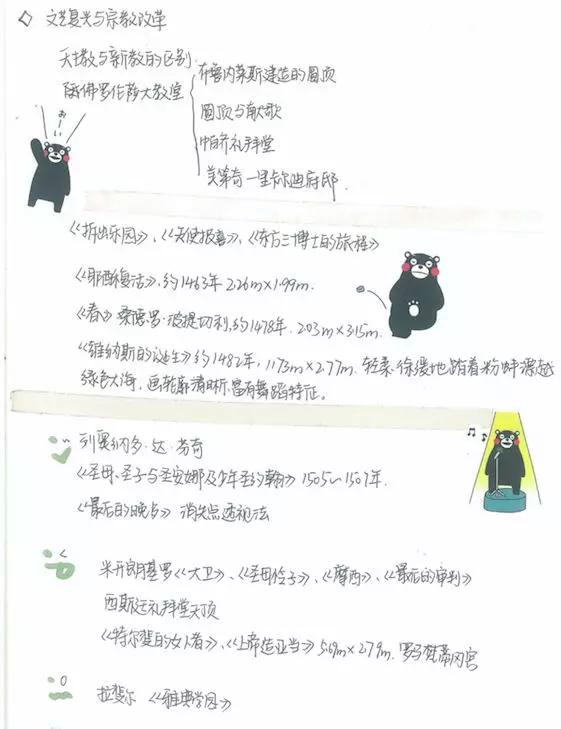 文艺复兴与宗教改革
天主教与新教的区别
佛罗伦萨大教堂
布鲁内莱斯建造的圆顶
圆顶与献歌
帕齐礼拜堂
美第奇—里卡尔迪府邸
お—い
《拆出乐园》、《天使报喜》、《东方三博士的旅程》
《耶稣复活》,约1463年 2.26m×1.99m.
《春》桑德罗·波提切利,约1478年. 2.03m×3.15m.
《维纳斯的诞生》约1482年, 1.73m×2.77m. 轻柔、徐缓地踏着粉蚌漂越
绿色大海. 画轮廓清晰.富有舞蹈特征。
列奥纳多·达·芬奇
《圣母、圣子与圣安娜及少年圣约翰》1505~1507年.
《最后的晚
》 消失点透视法
米开朗基罗《大卫》、《圣母怜子》、《摩西》、《最后的审判》
西斯廷礼拜堂天顶
《特尔斐的女
者》、《上帝造亚当》5.69m×2.79m. 罗马梵蒂冈宫
拉斐尔 《雅典学园》